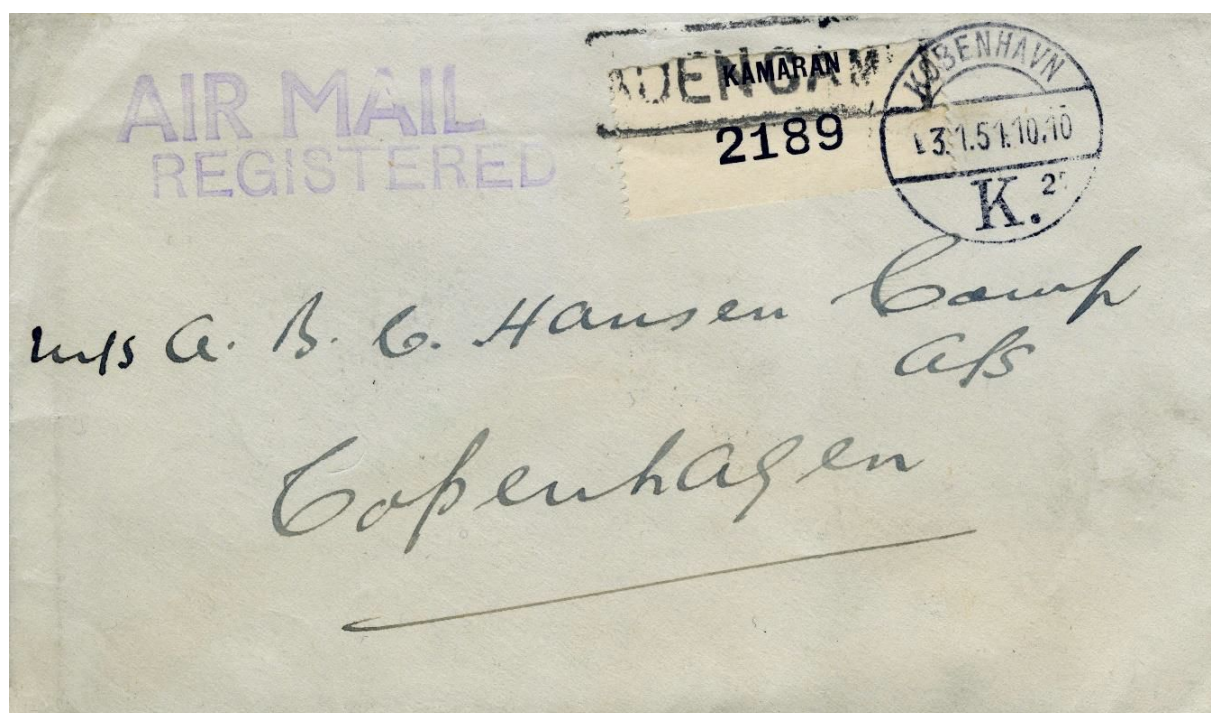 AIR MAIL
REGISTERED
KAMARAN
2189
KØBENHAVN
3.1.51.10.10
K.
M/s A. B. C. Hansen Comp
A/S
Copenhagen